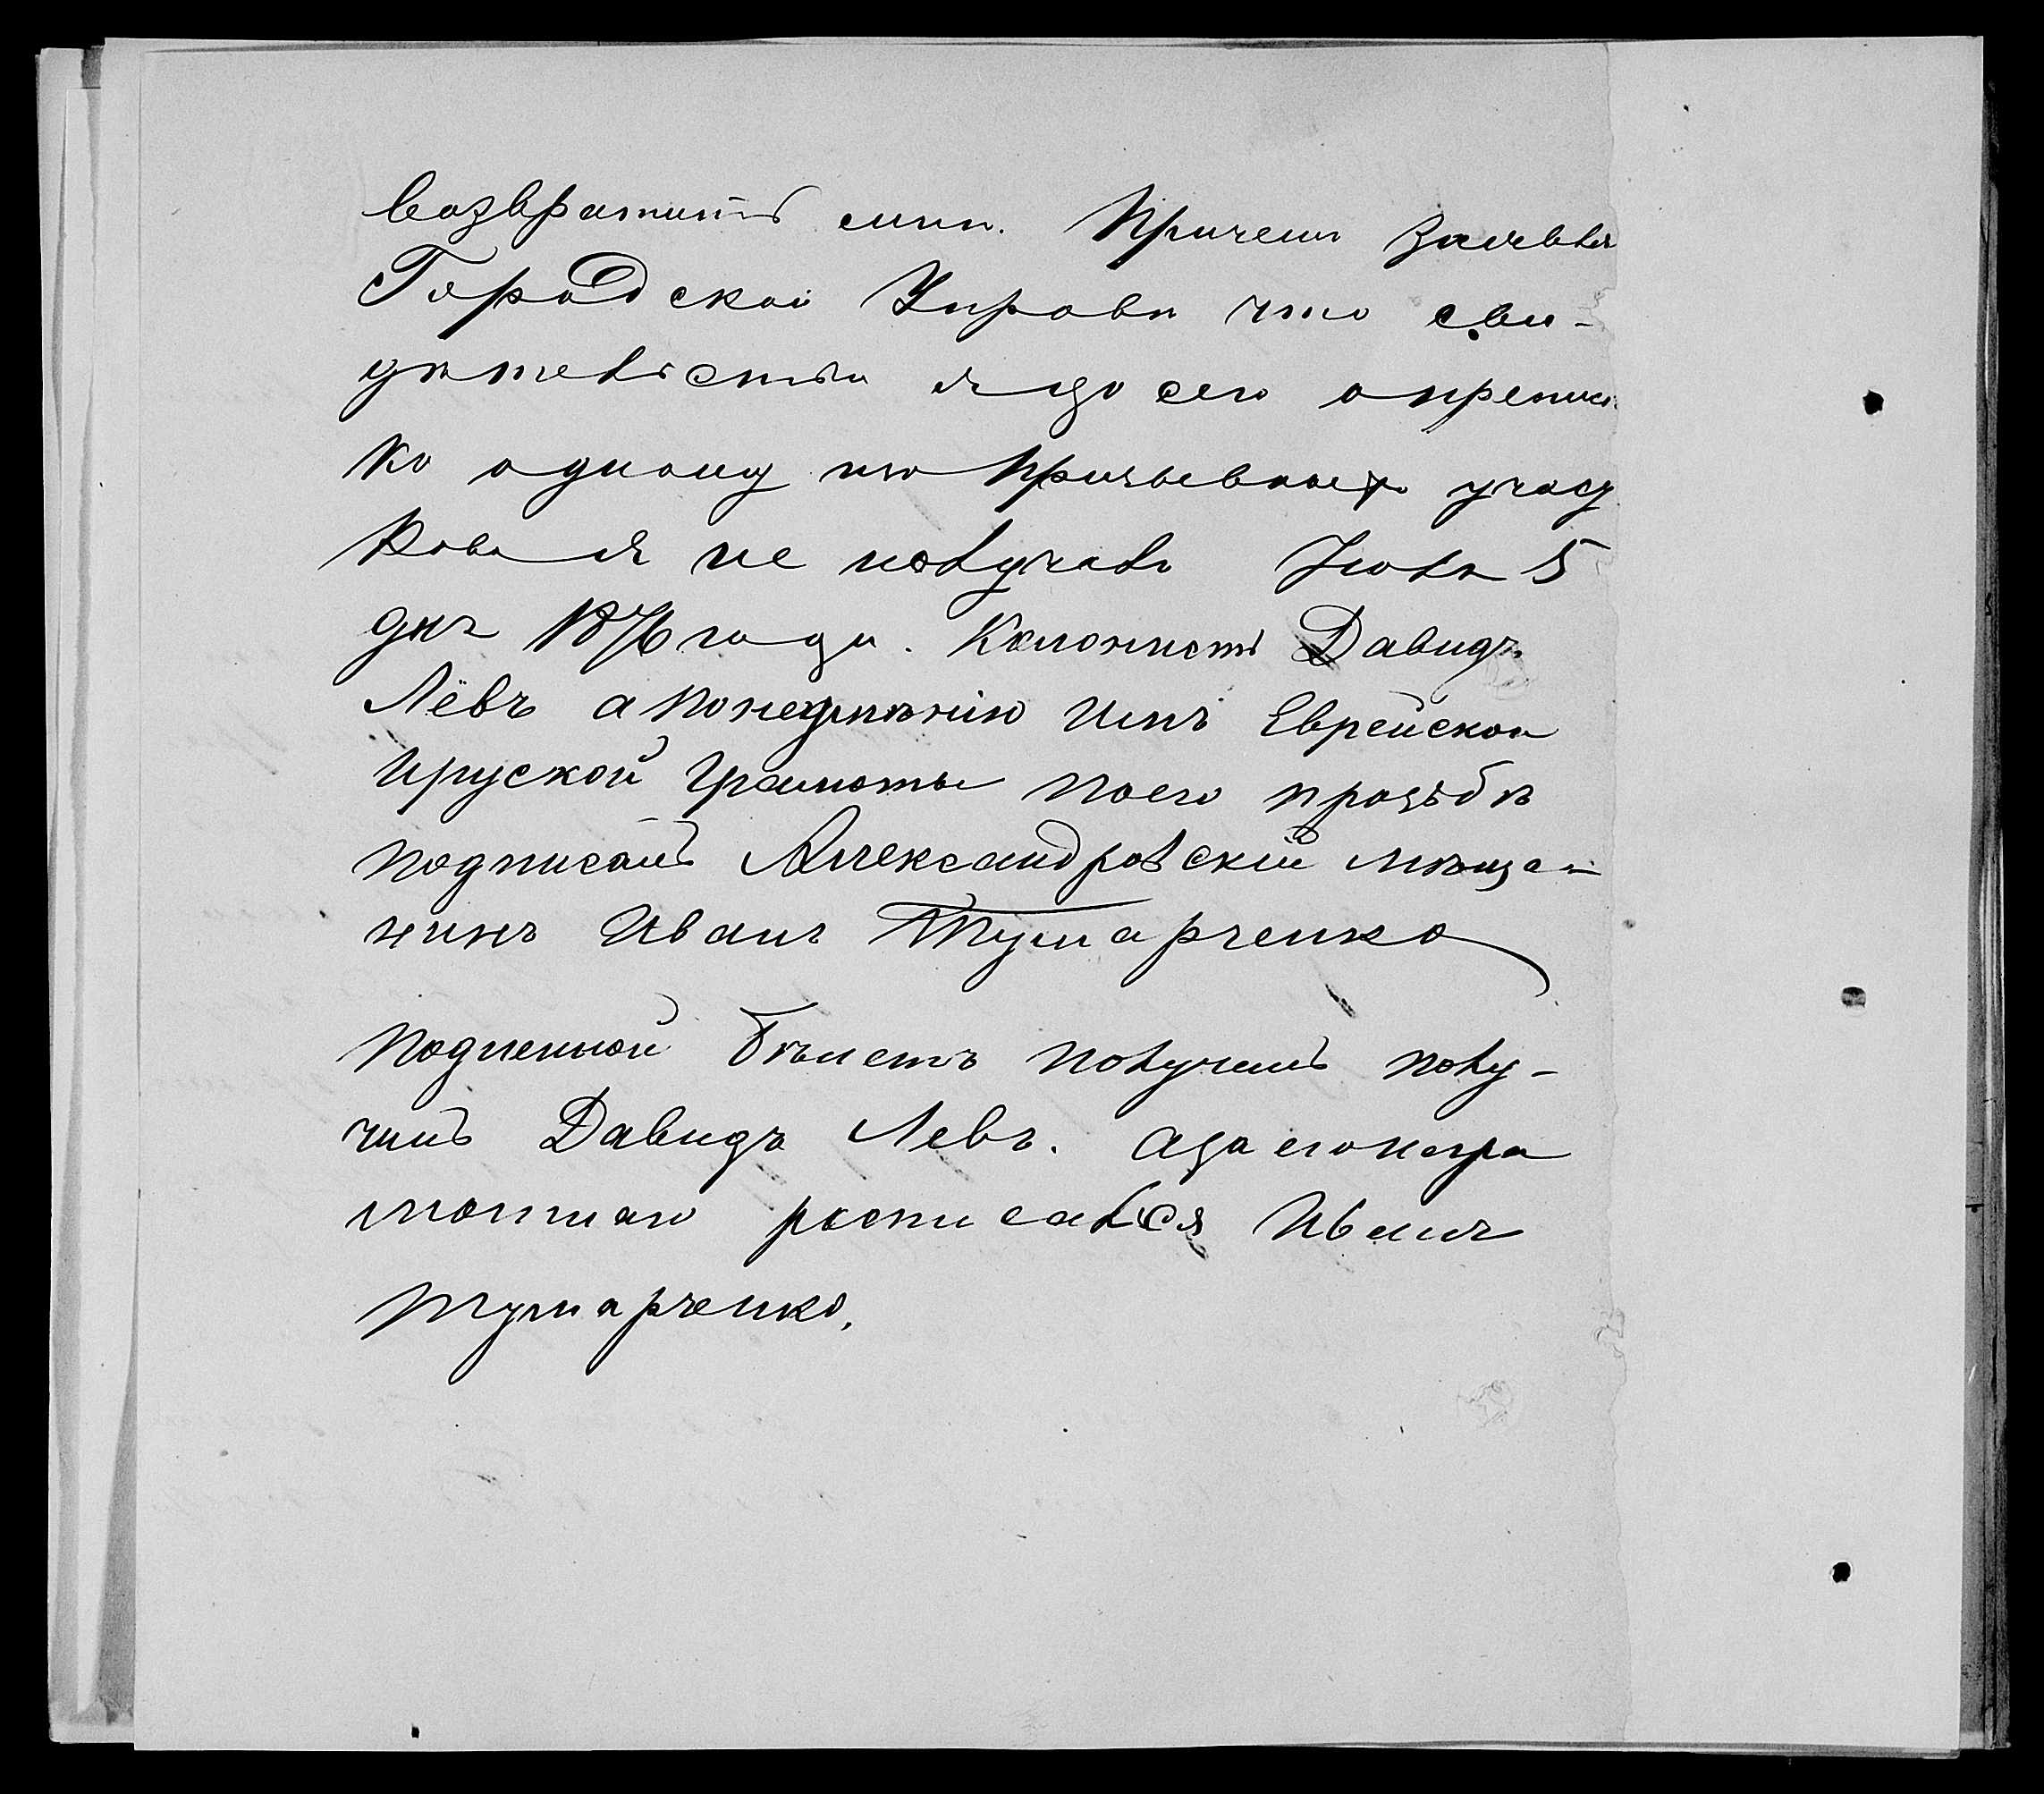 возвратить мнѣ. Причемъ заявля
Городской Управѣ что сви-
дѣтельства я до сего о приписк
ко одному изъ призывныхъ участ
ковъ я не получалъ Іюля 5
дня 1876 года. Колонистъ Давидъ
Лёвъ а понеумѣнію имъ Еврейской
ируской грамоты поего прозьбѣ
подписалъ Александровскій мѣща-
нинъ Иванъ Тушарченко
Подленной билетъ получилъ полу-
чилъ Давидъ Левъ. аза егонегра
мотнаго росписался Иванъ
Тушарченко.